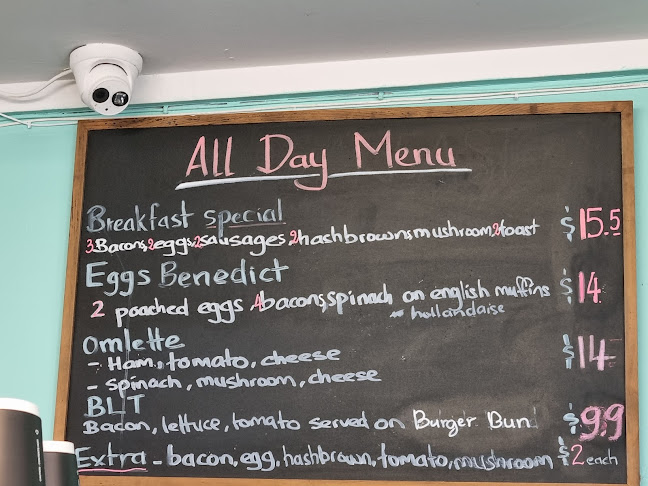 All Day Menu
Breakfast special $15.5
3 Bacons, 2 eggs, 2 sausages 2 hashbrowns, mushroom, 2 toast
Eggs Benedict $14
2 poached eggs 4 bacons, spinach on english muffins
hollandaise
Omlette $14
- Ham, tomato, cheese
- spinach, mushroom, cheese
BLT $9.9
Bacon, lettuce, tomato served on Burger Bun
Extra - bacon, egg, hashbrown, tomato, mushroom $2 each